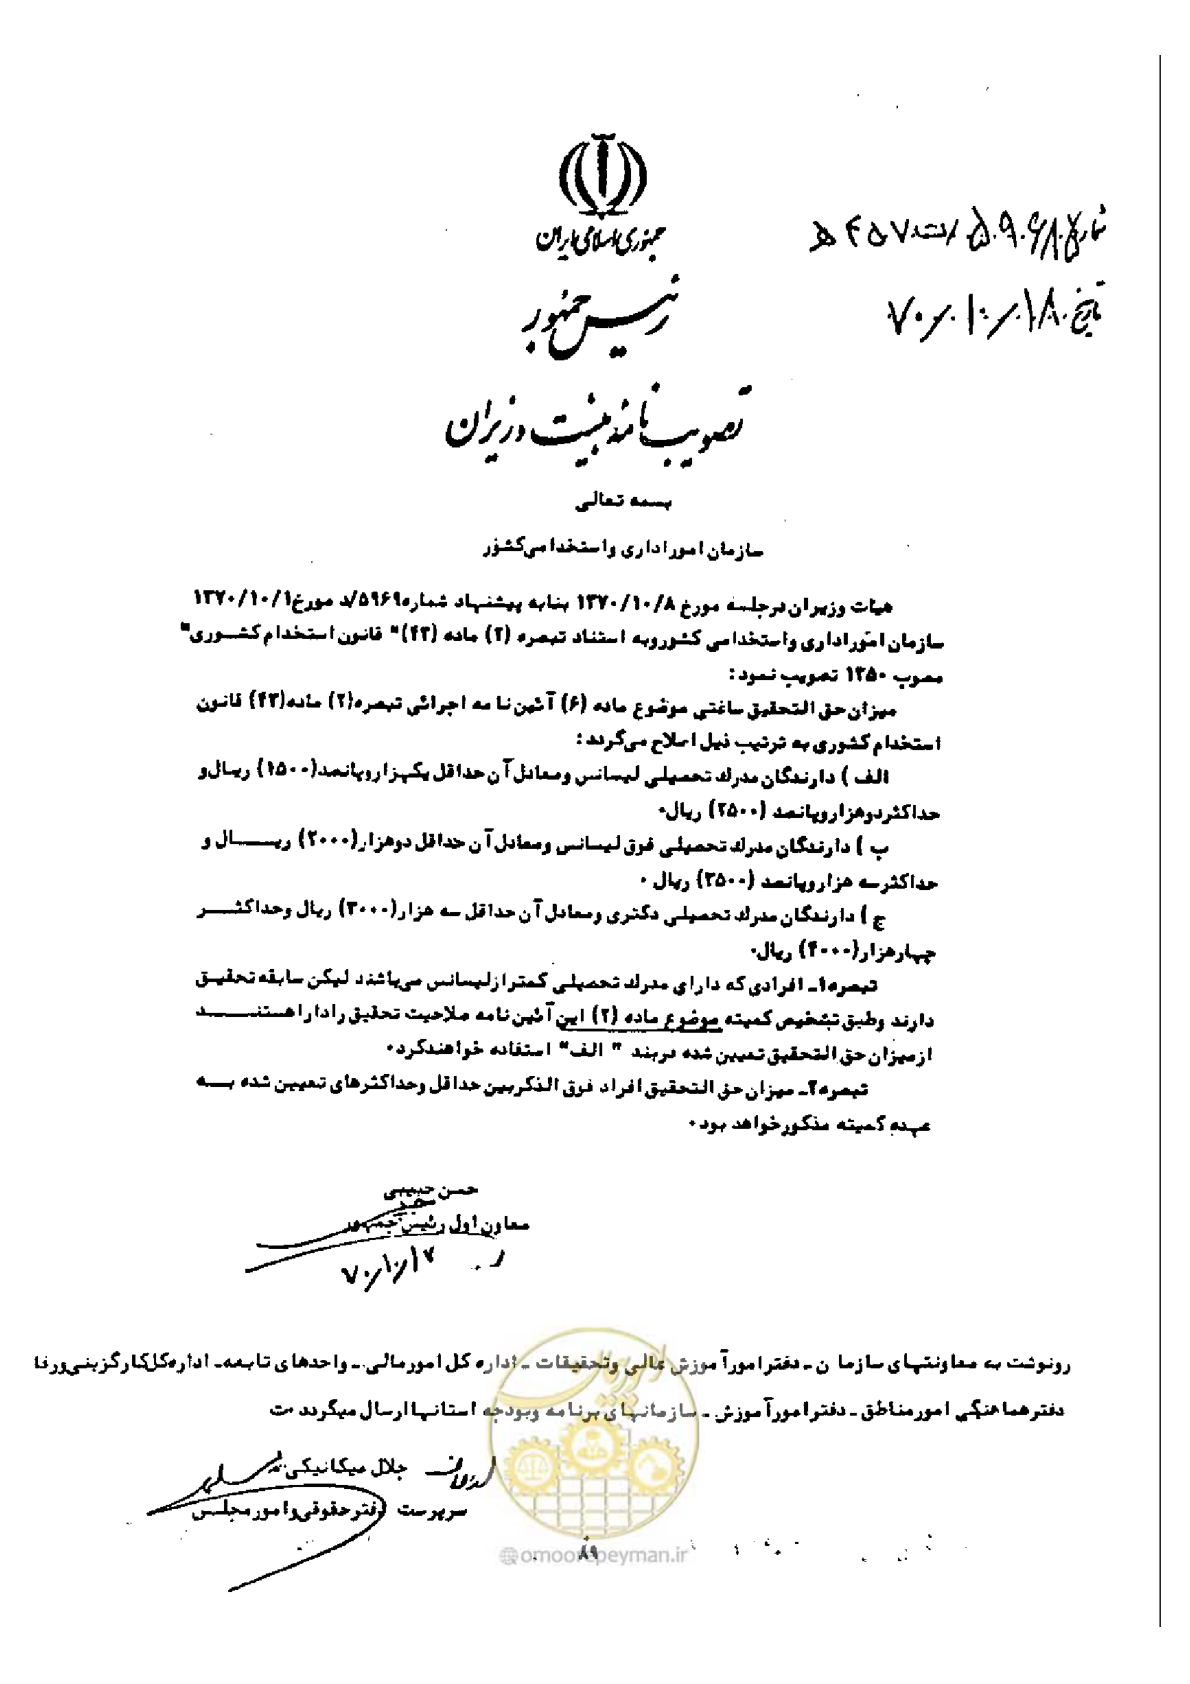 جمهوری اسلامی ایران
رئیس جمهور
تصویب نامه هیئت وزیران
شماره ۵۹۰۶۸/ت۴۵۷ه
تاریخ ۷۰/۱۰/۱۸
بسمه تعالی
سازمان امور اداری و استخدامی کشور
هیات وزیران در جلسه مورخ ۱۳۷۰/۱۰/۸ بنا به پیشنهاد شماره ۵۹۶۹/د مورخ ۱۳۷۰/۱۰/۱
سازمان امور اداری و استخدامی کشور و به استناد تبصره (۲) ماده (۴۳)" قانون استخدام کشوری"
مصوب ۱۳۵۰ تصویب نمود:
میزان حق التحقیق ساعتی موضوع ماده (۶) آئین نامه اجرائی تبصره (۲) ماده (۴۳) قانون
استخدام کشوری به ترتیب ذیل اصلاح می‌گردد:
الف ) دارندگان مدرك تحصیلی لیسانس و معادل آن حداقل یکهزار و پانصد (۱۵۰۰) ریال و
حداکثر دوهزار و پانصد (۲۵۰۰) ریال.
ب ) دارندگان مدرك تحصیلی فوق لیسانس و معادل آن حداقل دوهزار (۲۰۰۰) ریـــال و
حداکثر سه هزار و پانصد (۳۵۰۰) ریال .
ج ) دارندگان مدرك تحصیلی دکتری و معادل آن حداقل سه هزار (۳۰۰۰) ریال و حداکثـــر
چهارهزار (۴۰۰۰) ریال.
تبصره۱ـ افرادی که دارای مدرك تحصیلی کمتر از لیسانس می‌باشند لیکن سابقه تحقیق
دارند و طبق تشخیص کمیته موضوع ماده (۲) این آئین نامه صلاحیت تحقیق را دارا هستنـــد
از میزان حق التحقیق تعیین شده در بند " الف" استفاده خواهند کرد.
تبصره۲ـ میزان حق التحقیق افراد فوق الذکر بین حداقل و حداکثرهای تعیین شده بـــه
عهده کمیته مذکور خواهد بود.
حسن حبیبی
معاون اول رئیس جمهور
۷۰/۱۰/۱۷
رونوشت به معاونتهای سازمان ـ دفتر امور آموزش عالی و تحقیقات ـ اداره کل امور مالی ـ واحدهای تابعه ـ اداره کل کارگزینی و رفا
دفتر هماهنگی امور مناطق ـ دفتر امور آموزش ـ سازمانهای برنامه و بودجه استانها ارسال میگردد
جلال میکانیکی
سرپرست دفتر حقوقی و امور مجلس
امور پیمان
۸۹
@omoorepeyman.ir